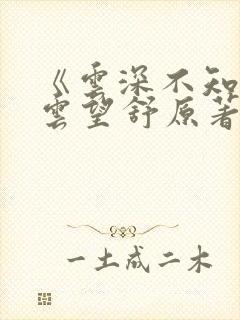 《雲深不知
雲望舒原著
一土成二木